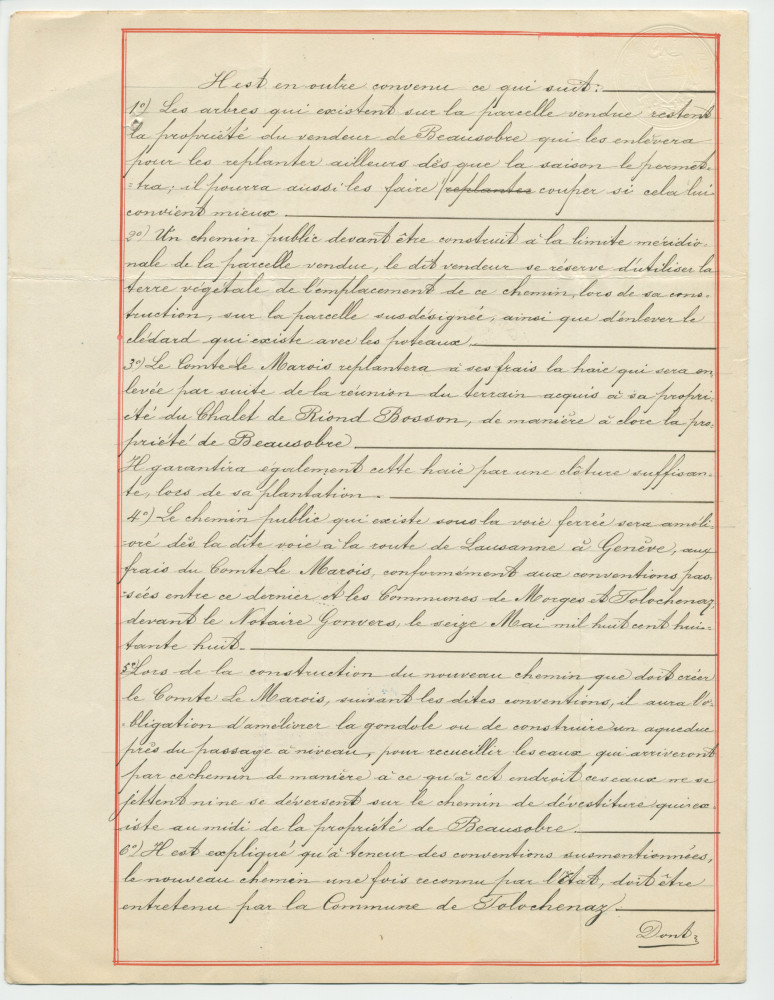 Il est en outre convenu ce qui suit:
1o) Les arbres qui existent sur la parcelle vendue restent
la propriété du vendeur de Beausobre qui les enlèvera
pour les replanter ailleurs dès que la saison le permet-
-tra; il pourra aussi les faire replanter couper si cela lui
convient mieux.
2o) Un chemin public devant être construit à la limite méridio-
nale de la parcelle vendue, le dit vendeur se réserve d'utiliser la
terre végétale de l'emplacement de ce chemin, lors de sa cons-
truction, sur la parcelle susdésignée, ainsi que d'enlever le
clédard qui existe avec les poteaux.
3o) Le Comte Le Marois replantera à ses frais la haie qui sera en-
levée par suite de la réunion du terrain acquis à sa propri-
été du Chalet de Riond Bosson, de manière à clore la pro-
priété de Beausobre
Il garantira également cette haie par une clôture suffisan-
te, lors de sa plantation.
4o) Le chemin public qui existe sous la voie ferrée sera améli-
-oré dès la dite voie à la route de Lausanne à Genève, aux
frais du Comte Le Marois, conformément aux conventions pas-
-sées entre ce dernier et les Communes de Morges et Tolochenaz,
devant le Notaire Gonvers, le seize Mai mil huit cent hui-
tante huit.
5o) Lors de la construction du nouveau chemin que doit créer
le Comte Le Marois, suivant les dites conventions, il aura l'o-
-bligation d'améliorer la gondole ou de construire un aqueduc
près du passage à niveau, pour recueillir les eaux qui arriveront
par ce chemin de manière à ce qu'à cet endroit ces eaux ne se
jettent ni ne se déversent sur le chemin de dévestiture qui ex-
iste au midi de la propriété de Beausobre.
6o) Il est expliqué qu'à teneur des conventions susmentionnées,
le nouveau chemin une fois reconnu par l'état, doit être
entretenu par la Commune de Tolochenaz.
Dont